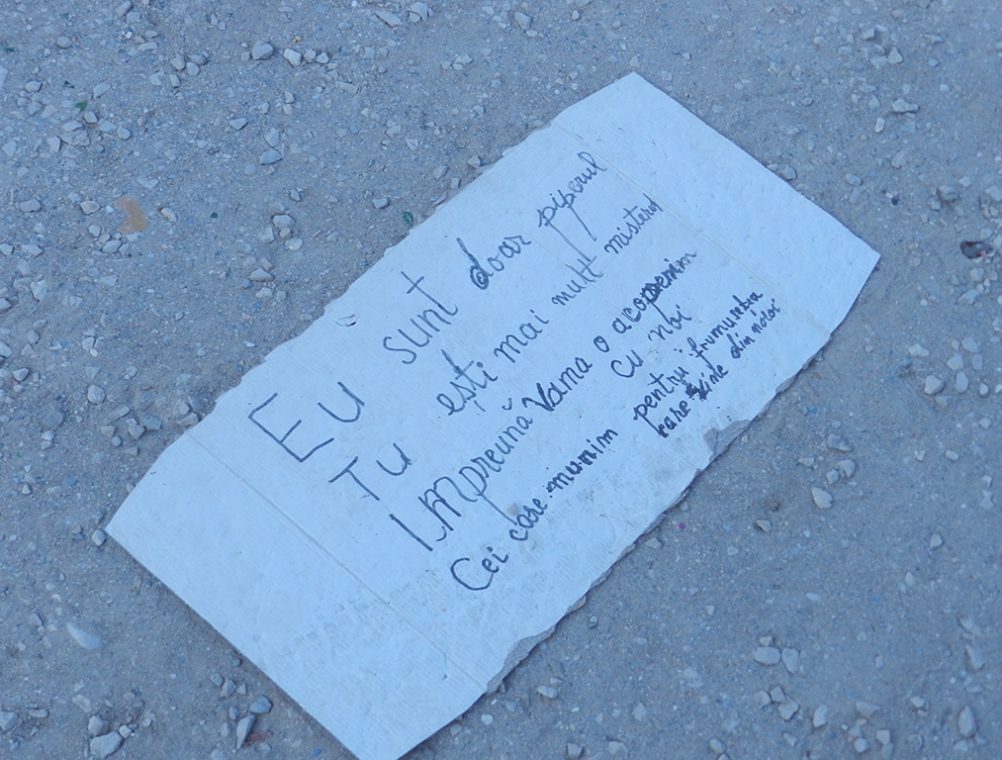 Eu sunt doar piperul
Tu ești mai mult misterul
Impreună Vama o acoperim
cu noi
Cei care murim pentru frumusetea
care vine din noroi